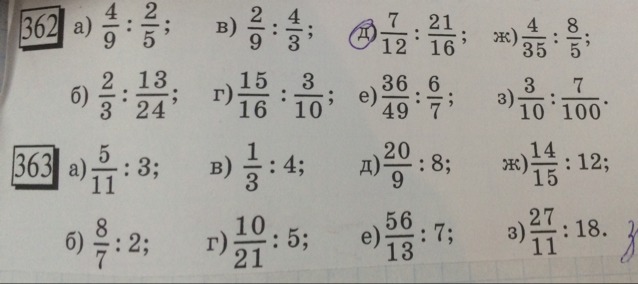 362 а) 4/9 : 2/5; в) 2/9 : 4/3; д) 7/12 : 21/16; ж) 4/35 : 8/5;
б) 2/3 : 13/24; г) 15/16 : 3/10; е) 36/49 : 6/7; з) 3/10 : 7/100.
363 а) 5/11 : 3; в) 1/3 : 4; д) 20/9 : 8; ж) 14/15 : 12;
б) 8/7 : 2; г) 10/21 : 5; е) 56/13 : 7; з) 27/11 : 18.